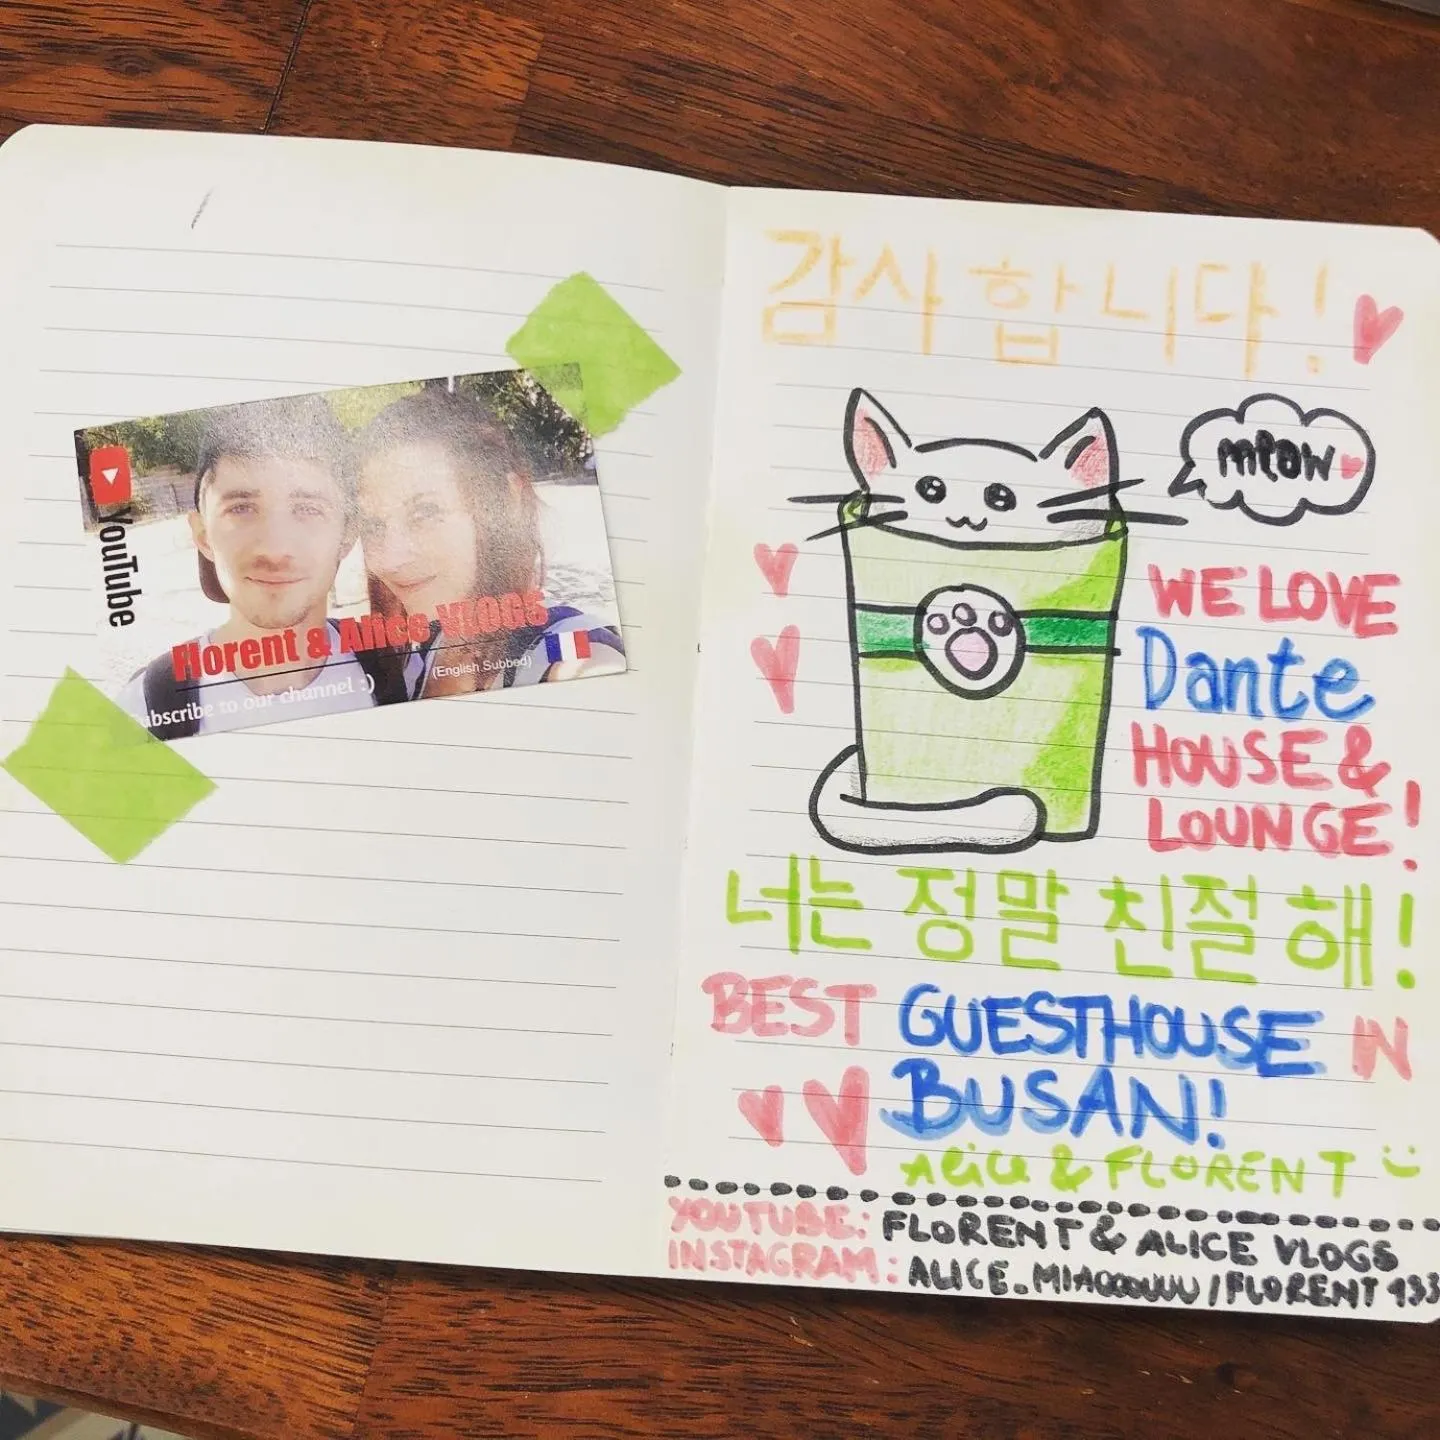 YouTube
Florent & Alice VLOGS
(English Subbed)
Subscribe to our channel :)
감사합니다!
meow
WE LOVE
Dante
HOUSE &
LOUNGE!
너는 정말 친절해!
BEST GUESTHOUSE IN
BUSAN!
Alice & FLORENT
YOUTUBE: FLORENT & ALICE VLOGS
INSTAGRAM: ALICE_MIAOOOUUU / FLORENT 133